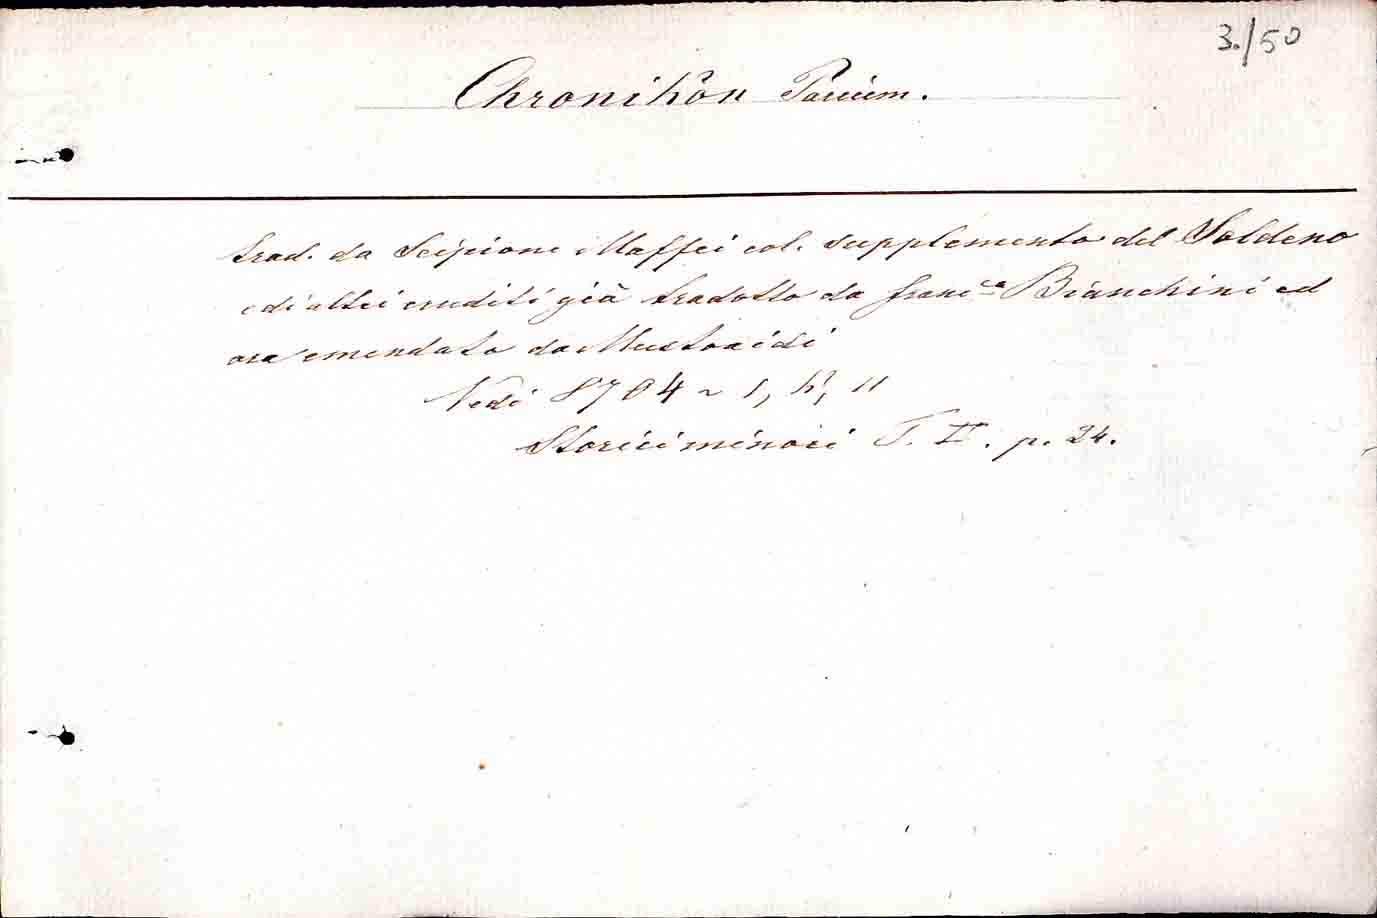 3./50
Chronikon Parium.
trad. da Scipione Maffei col. supplemento del Seldeno
e di altri eruditi già tradotto da Franc.ca Bianchini ed
ora emendato da Mustoxidi
Vedi 8704 ~ 1, h, 11
Storici minori T. II. p. 24.